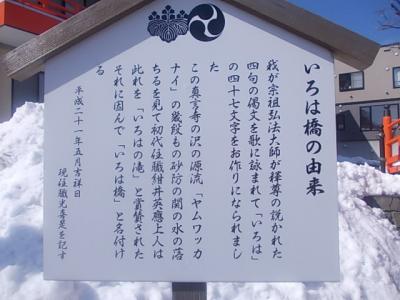 いろは橋の由来
我が宗祖弘法大師が釋尊の説かれた
四句の偈文を歌に詠まれて「いろは」
の四十七文字をお作りになられまし
た
この真言寺の沢の源流「ヤムワッカ
ナイ」の幾段もの砂防の関の水の落
ちるを見て初代住職紺井英應上人は
此れを「いろはの滝」と賞賛された
それに因んで「いろは橋」と名付け
る
平成二十一年五月吉祥日
現住職光喜是を記す